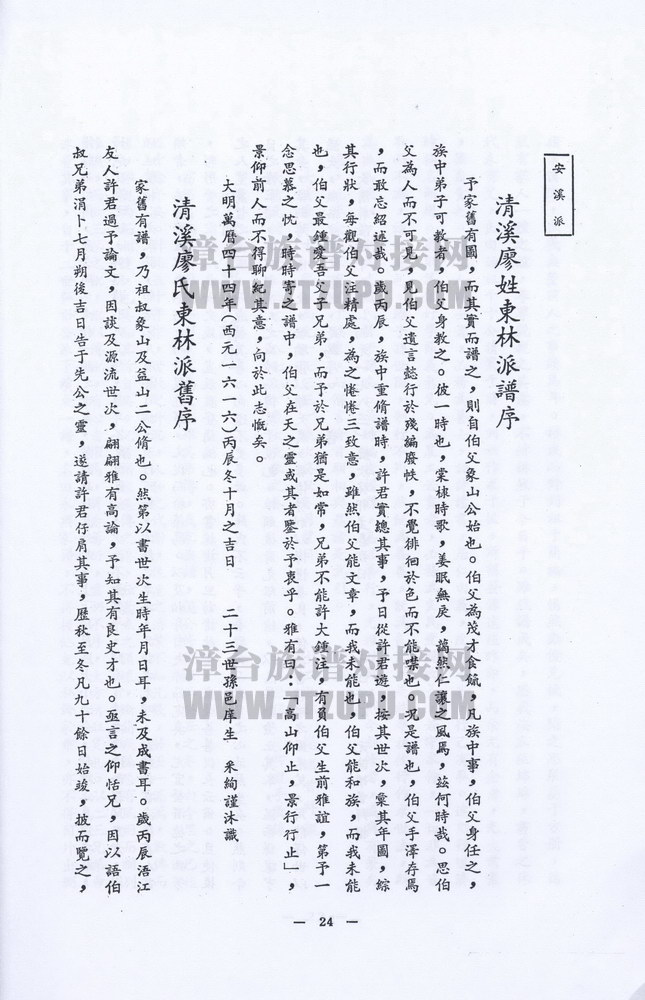 安溪派
清溪廖姓東林派譜序
予家舊有圖，而其實而譜之，則自伯父象山公始也。伯父為茂才食餼，凡族中事，伯父身任之，
族中弟子可教者，伯父身教之。彼一時也，棠棣時歌，姜眠無戾，藹然仁讓之風焉，茲何時哉。思伯
父為人而不可見，見伯父遺言懿行於殘編廢帙，不覺徘徊於色而不能喋也。况是譜也，伯父手澤存焉
，而敢忘紹述哉。歲丙辰，族中重脩譜時，許君實總其事，予日從許君遊，按其世次，彙其年圖，綜
其行狀，每觀伯父注精處，為之惓惓三致意，雖然伯父能文章，而我未能也，伯父能和族，而我未能
也，伯父最鍾愛吾父子兄弟，而予於兄弟猶是如常，兄弟不能許大鍾注，有負伯父生前雅誼，第予一
念思慕之忱，時時寄之譜中，伯父在天之靈或其者鑒於予衷乎。雅有曰：「高山仰止，景行行止」，
景仰前人而不得聊紀其意，向於此志慨矣。
大明萬曆四十四年（西元一六一六）丙辰冬十月之吉日　二十三世孫邑庠生　釆絢謹沐識
清溪廖氏東林派舊序
家舊有譜，乃祖叔象山及益山二公脩也。然第以書世次生時年月日耳，未及成書耳。歲丙辰浯江
友人許君過予論文，因談及源流世次，翩翩雅有高論，予知其有良史才也。亟言之仰恬兄，因以語伯
叔兄弟涓卜七月朔後吉日告于先公之靈，遂請許君仔肩其事，歷秋至冬凡九十餘日始竣，披而覽之，
— 24 —
漳台族谱对接网
WWW.ZTZUPU.COM
漳台族谱对接网
WWW.ZTZUPU.COM